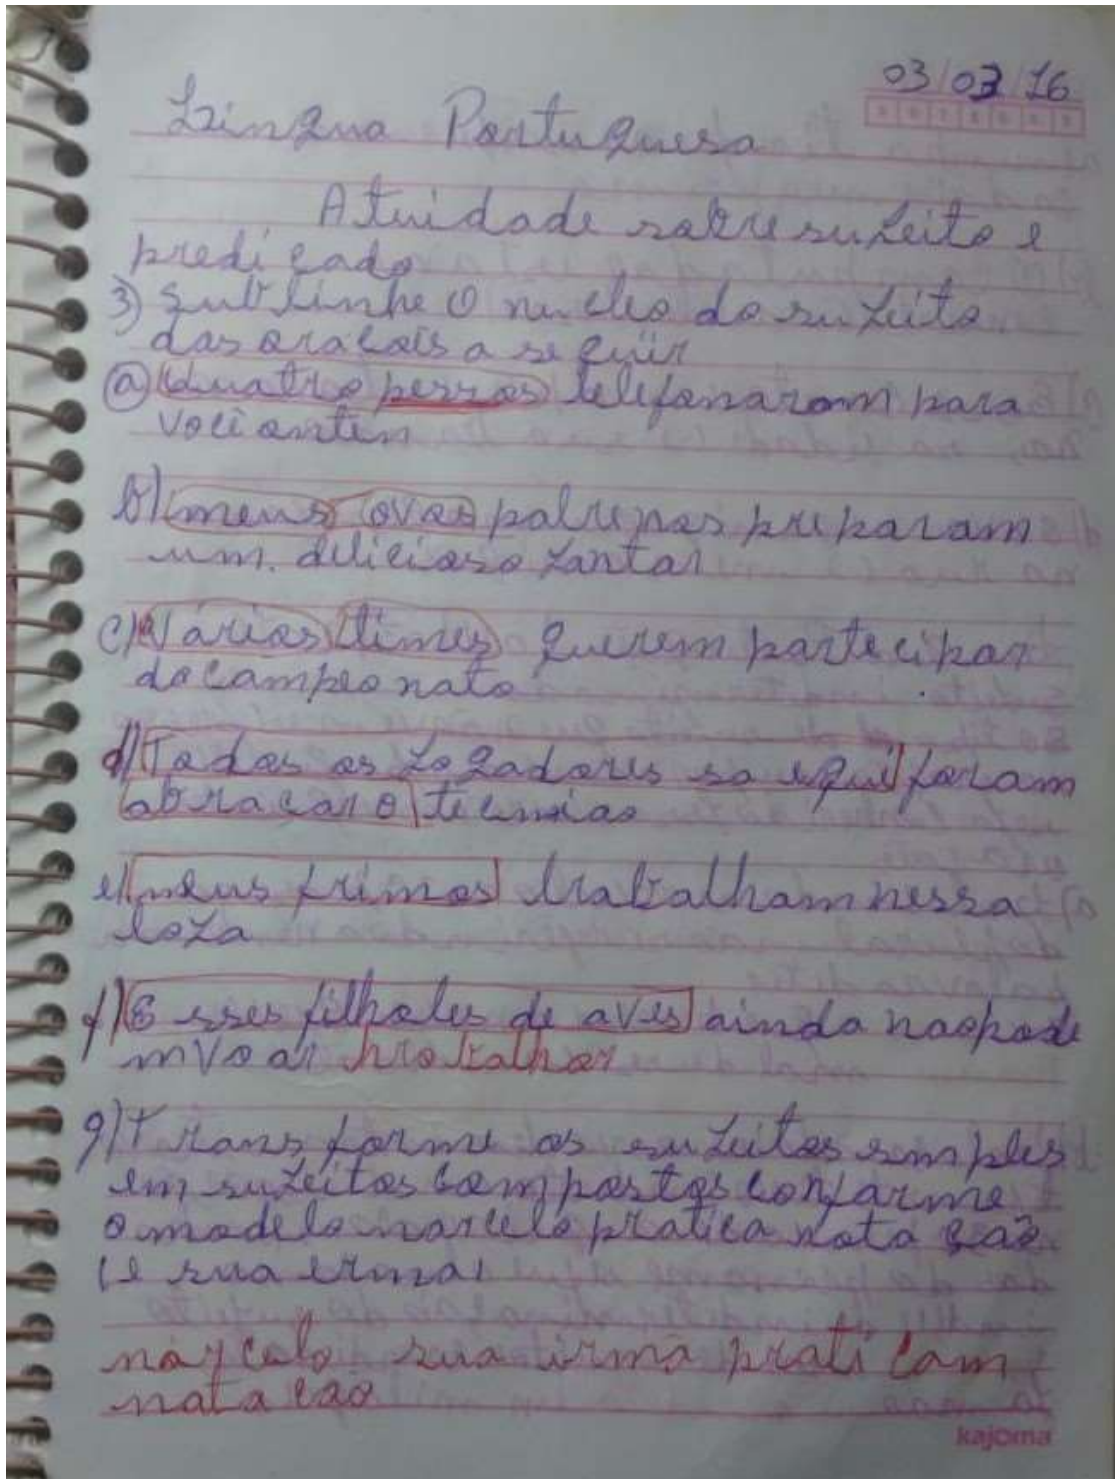 03/03/16
Língua Portuguesa
Atividade sobre sujeito e
predicado
3) Sublinhe O nucleo do sujeito
das oracois a seguir
a) Quatro pessoas telefonaram para
voce ontem
b) meus avós preparam
um. delicioso jantar
c) Várias times querem partecipar
do campeonato
d) Todos os jogadores foram
abracar o
e) meus primos trabalham nessa
loja
f) Esses filhotes de aves ainda nao pode
m voar
g) Transforme os sujeitos simples
em sujeitos compostos conforme
o modelo marcelo pratica nata ção
(e sua irma)
sua irmã prati cam
nata cão
kajoma